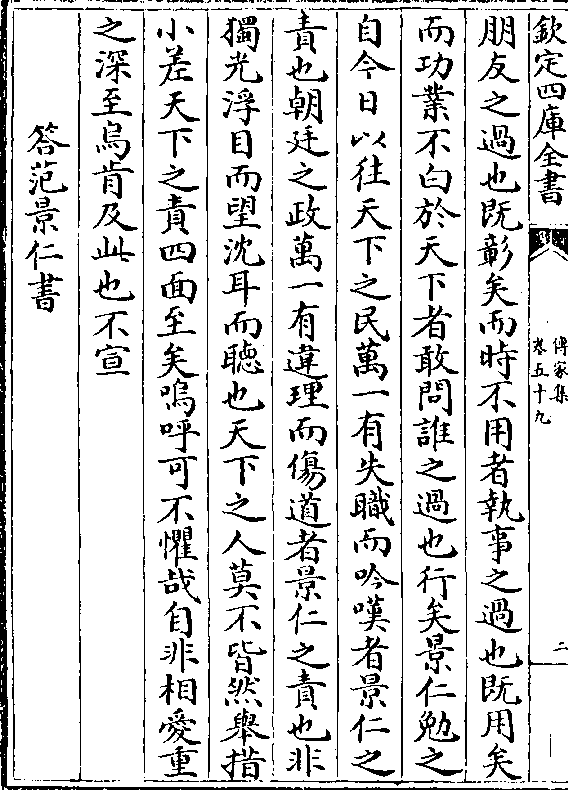 欽定四庫全書
傳家集
卷五十九
二
朋友之過也既彰矣而時不用者執事之過也既用矣
而功業不白於天下者敢問誰之過也行矣景仁勉之
自今日以往天下之民萬一有失職而吟嘆者景仁之
責也朝廷之政萬一有違理而傷道者景仁之責也非
獨光浮目而望沈耳而聽也天下之人莫不皆然舉措
小差天下之責四面至矣嗚呼可不懼哉自非相愛重
之深至烏肯及此也不宣
答范景仁書